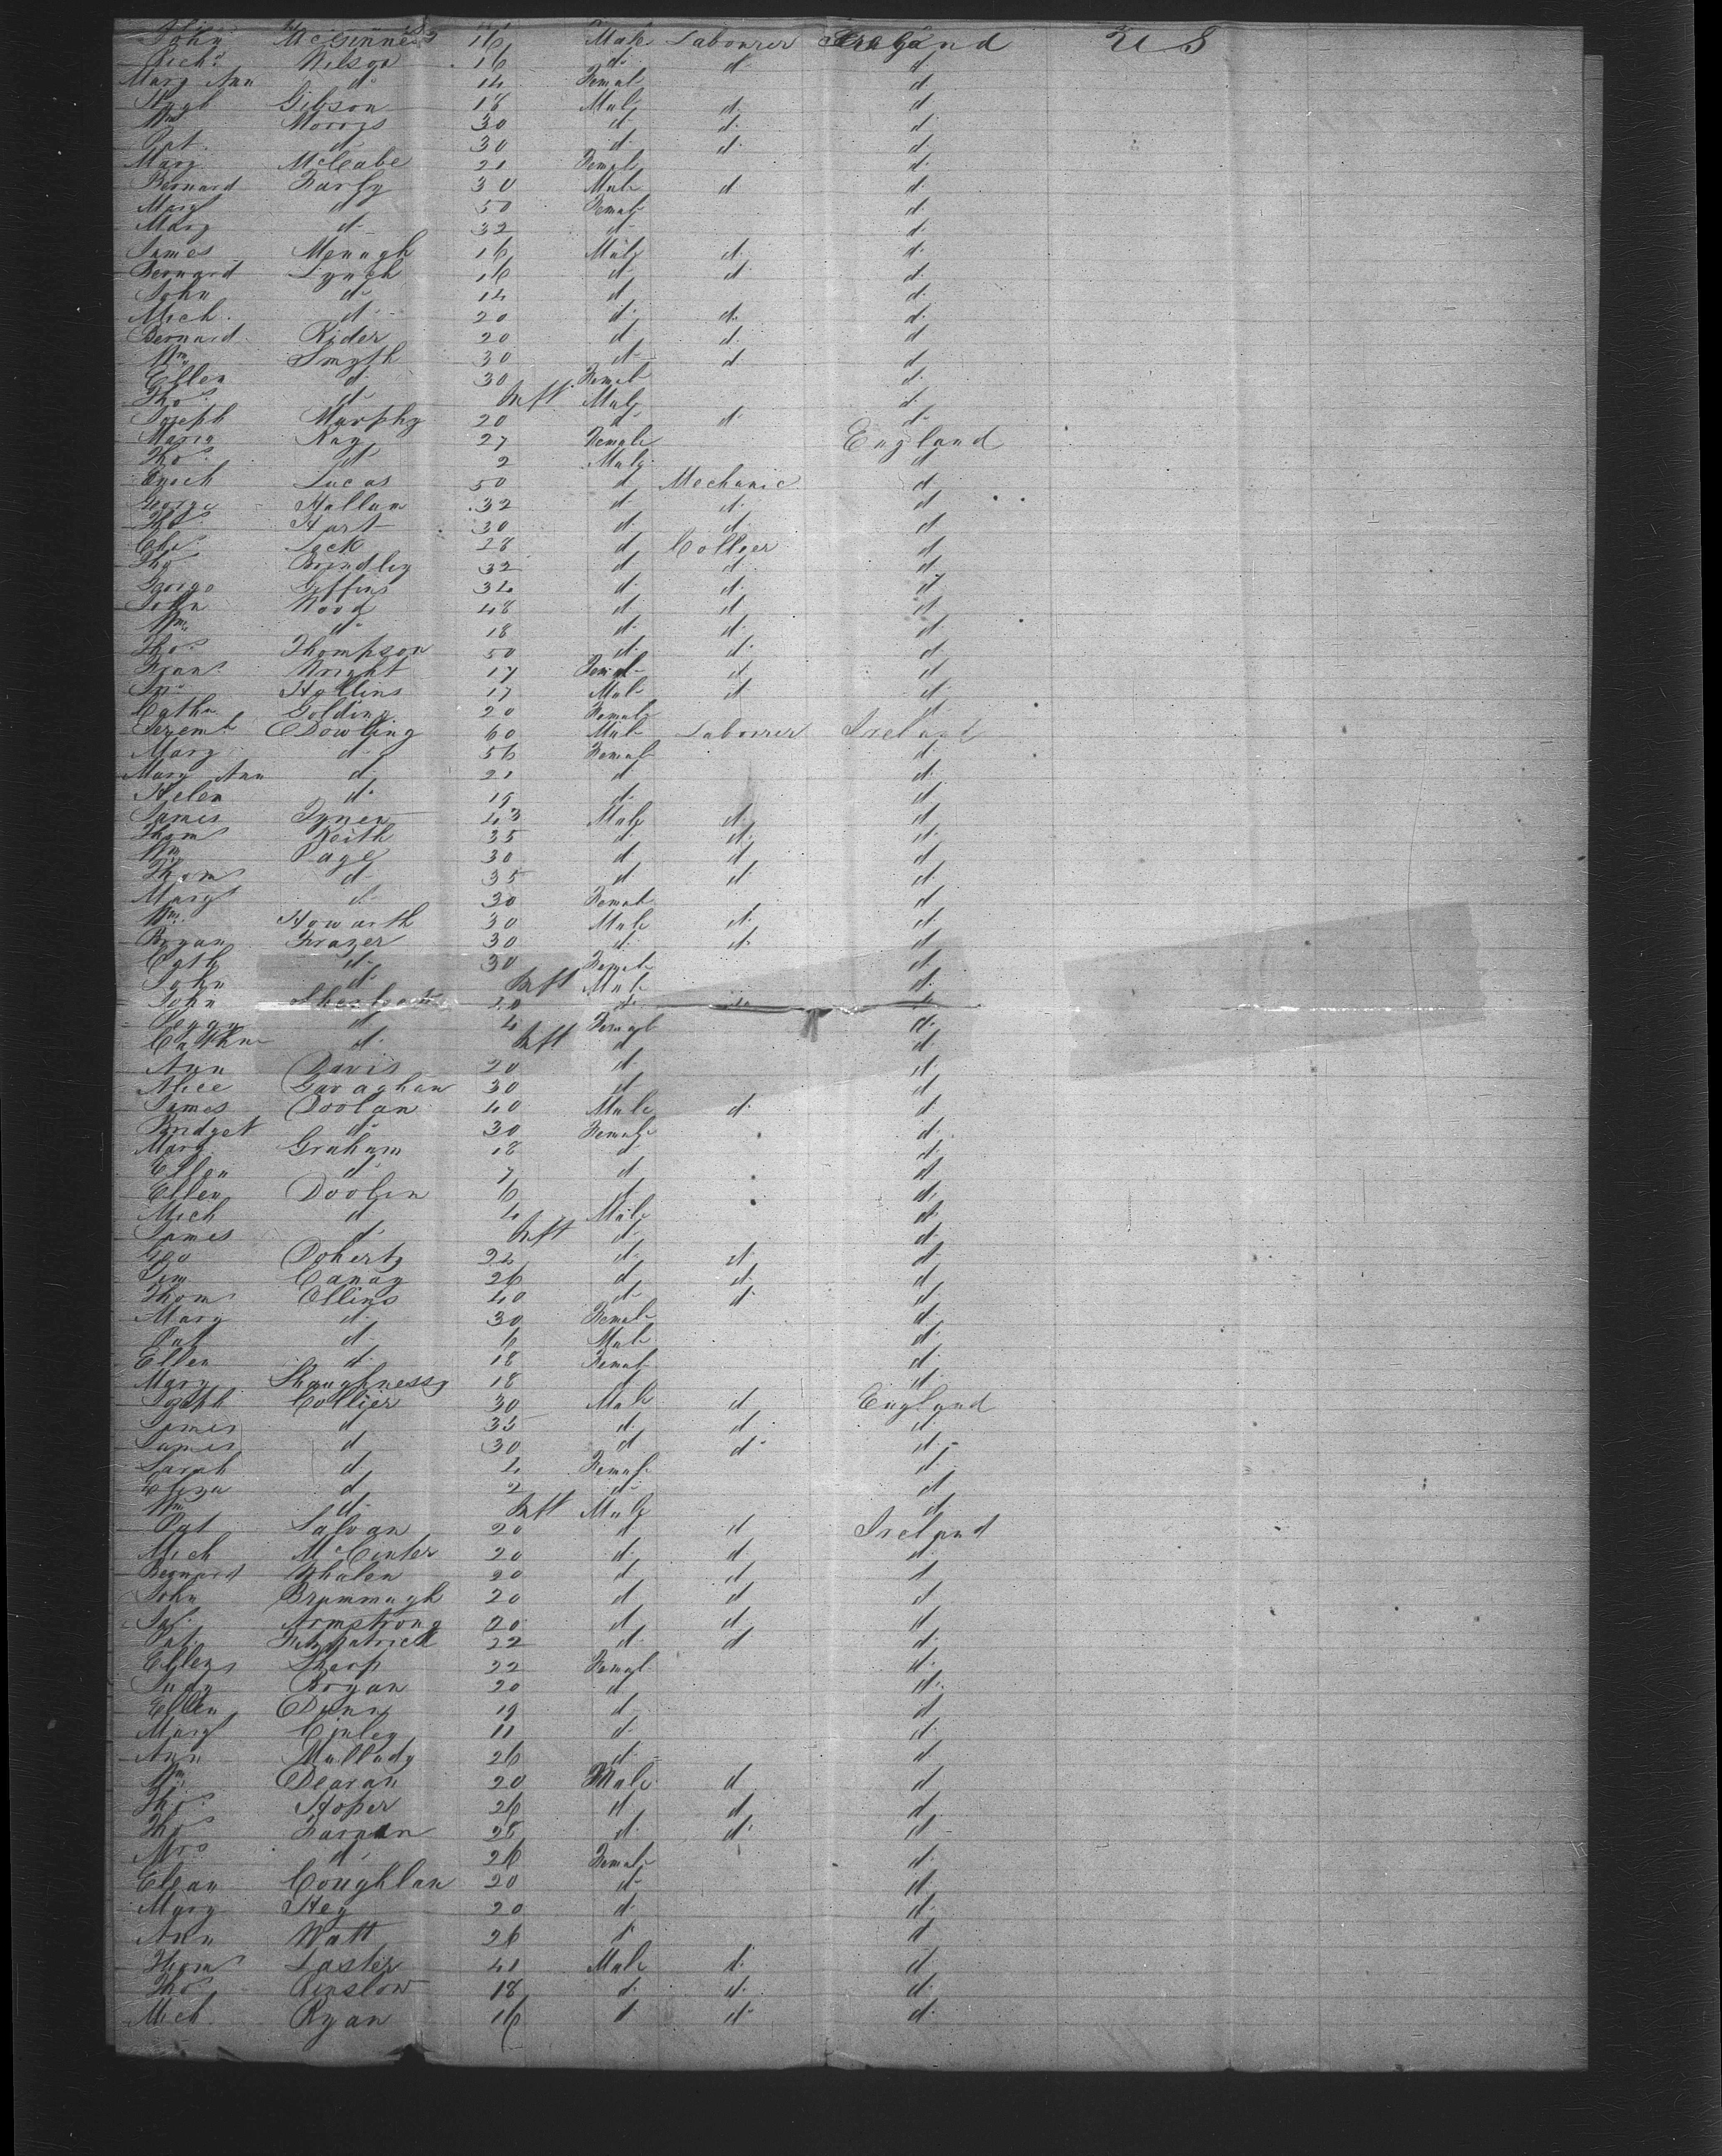 John McGinness 16 Male Labourer Ireland U S
Rich.d Wilson 16 d d d
Mary Ann d 14 Female d
Hugh Gibson 18 Male d d
Wm Morrys 30 d d d
Pat d 30 d d d
Mary McCabe 21 Female d
Bernard Farly 30 Male d d
Margt d 50 Female d
Mary d 32 d d
James Menagh 16 Male d d
Bernard Lynch 16 d d d
John d 14 d d
Mich d 20 d d d
Bernard Rider 20 d d d
Wm Smyth 30 d d d
Ellen d 30 Female d
Thos d Inft Male d
Joseph Murphy 20 d d d
Maria Ray 27 Female England
Thos d 2 Male d
Enoch Lucas 50 d Mechanic d
George Hallam 32 d d d
Thos Hart 30 d d d
Chs Lock 28 d Collier d
Thos Brindley 32 d d d
George Giffins 34 d d d
John Wood 48 d d d
Wm d 18 d d d
Thos Thompson 50 d d d
Frans Wright 17 Female d d
Jno Hollins 17 Male d d
Cathn Golding 20 Female d
Jeremh Dowling 60 Male Labourer Ireland
Mary d 56 Female d
Mary Ann d 21 d d
Helen d 19 d d
James Tyner 43 Male d d
Thoms Keith 35 d d d
Wm Page 30 d d d
Thoms d 35 d d d
Margt d 30 Female d
Wm Howarth 30 Male d d
Bryan Frazer 30 d d d
Cath d 30 Female d
John d Inft Male d
John 20 d d d
Peggy d 4 Female d
Cathne d Inft d d
Ann Davis 20 d d
Alice Garaghan 30 d d
James Doolan 40 Male d d
Bridget d 30 Female d
Mary Graham 18 d d
Ellen d 7 d d
Ellen Doolin 6 d d
Mich d 4 Male d
James d Inft d d
Geo Doherty 22 d d d
Jem Canay 26 d d d
Thoms Ellins 40 d d d
Mary d 30 Female d
Pat d 6 Male d
Ellen d 18 Female d
Mary Shaughnessy 18 d d
Joseph Collier 30 Male d England
James d 35 d d d
James d 30 d d d
Sarah d 4 Female d
Eliza d 2 d d
Wm d Inft Male d
Pat Salvan 20 d d Ireland
Mich McCinter 20 d d d
Bernard Whalen 20 d d d
John Brummagh 20 d d d
Jas Armstrong 20 d d d
Pat Fitzpatrick 22 d d d
Ellen Sharp 22 Female d
Judy Bryan 20 d d
Ellen Dunn 19 d d
Margt Cinley 11 d d
Ann Mullady 26 d d
Wm Dearan 20 Male d d
Thos Hoper 26 d d d
Thos Farnan 28 d d d
Mrs d 26 Female d
Elean Coughlan 20 d d
Mary Hey 20 d d
Ann Watt 26 d d
Thoms Laster 41 Male d d
Thos Kinslow 18 d d d
Mich Ryan 16 d d d